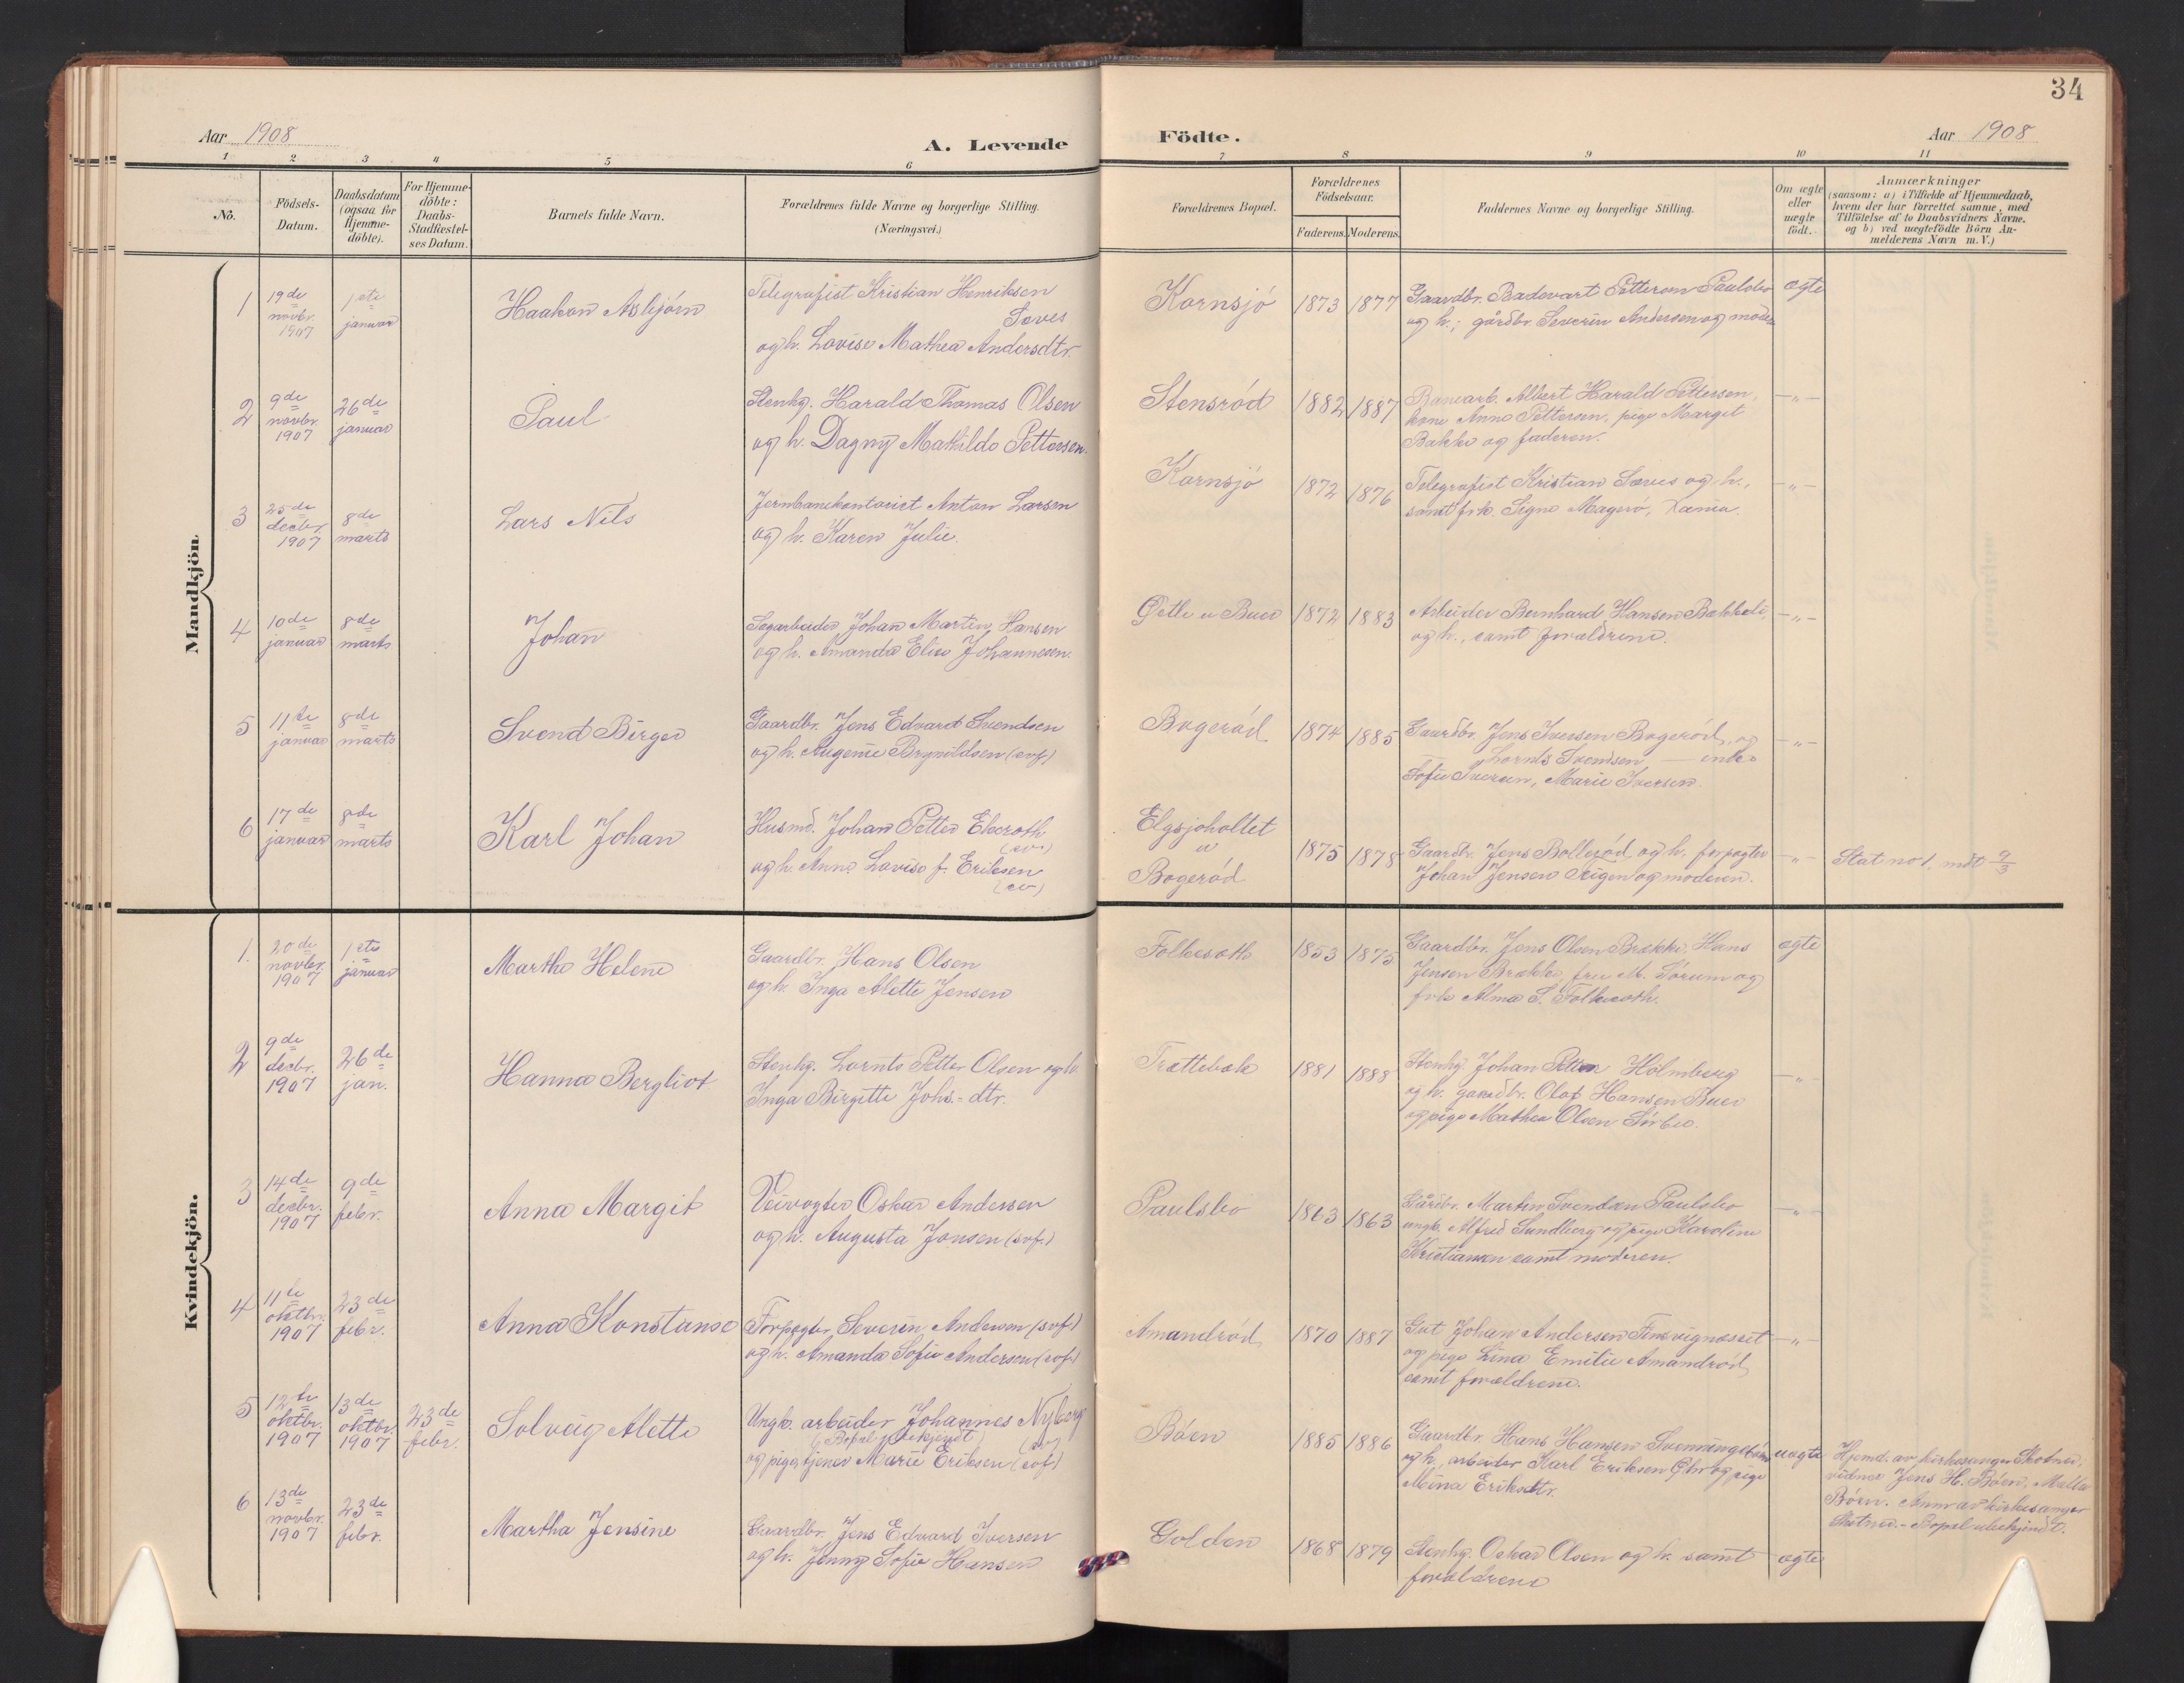 34
Aar 1908
A. Levende Födte.
Aar 1908
1 2 3 4 5 6 7 8 9 10 11
No.
Födsels-Datum.
Daabsdatum (ogsaa for Hjemme-döbte).
For Hjemme-döbte: Daabs-Stadfæstel-ses Datum.
Barnets fulde Navn.
Forældrenes fulde Navne og borgerlige Stilling.
(Næringsvei.)
Forældrenes Bopæl.
Forældrenes Födselsaar.
Faderens. Moderens.
Faddernes Navne og borgerlige Stilling.
Om ægte eller uægte födt.
Anmærkninger
(saasom: a) i Tilfælde af Hjemmedaab,
hvem der har forrettet samme, med
Tilföielse af to Daabsvidners Navne.
og b) ved uægtefödte Börn An-
melderens Navn m. V.)
Mandkjön.
1 19de novbr. 1907 1ste januar Haakon Asbjörn
Telegrafist Kristian Henriksen
Sæves
og h. Lovise Mathea Andersdtr.
Kornsjö 1873 1877
Gaardbr. Petterson Paulsbo
og h.; gårdbr. Severin Andersen og moderen
ægte
2 9de novbr. 1907 26de januar Paul
Stenhg. Harald Thomas Olsen
og h. Dagny Mathilde Pettersen.
Stensröd 1882 1887
Banearb. Albert Harald Pettersen,
kone Anne Pettersen, pige Margit
Bakke og faderen.
-"-
3 25de decbr. 1907 8de marts Lars Nils
Jernbanekontorist Anton Larsen
og h. Karen Julie.
Kornsjö 1872 1876
Telegrafist Kristian Sæves og h.,
samt frk. Signe Magerö, Xania.
-"-
4 10de januar 8de marts Johan
Sagarbeider Johan Martin Hansen
og h. Amanda Elise Johannesen.
Buer 1872 1883
Arbeider Bernhard Hansen
og h., samt forældrene.
-"-
5 11te januar 8de marts Svend Birger
Gaardbr. Jens Edvard Svendsen
og h. Augenie Brynildsen (svf)
Bogeröd 1874 1885
Gaardbr. Jens Iversen Bogeröd, og
Lornts Svendsen – enke
Sofie Iversen, Marie Iversen.
-"-
6 17de januar 8de marts Karl Johan
Husmd. Johan Petter Ekeroth
(sv)
og h. Anna Lovise f. Eriksen
(sv)
Elgsjoholtet
Bogeröd
1875 1878
Gaardbr. Jens Bolleröd og h. forpagter
Johan Jensen og moderen.
-"-
Stat no 1, mdt 9/3
Kvindekjön.
1. 20de novbr. 1907 1ste januar Marthe Helene
Gaardbr. Hans Olsen
og h. Inga Alette Jensen
Folkesøth 1853 1875
Gaardbr. Jens Olsen Brække, Hans
Jensen Brække, fru M. Sørum og
frk Alma S. Folkesøth.
ægte
2 9de decbr. 1907 26de jan. Hanna Bergliot
Stenhg. Lornts Petter Olsen og h.
Inga Birgitte Johs-dtr.
Trættebæk 1881 1888
Stenhg. Johan Petter Holmberg
og h. gaardbr. Olaf Hansen Buer
og pige Mathea Olsen Sörbu.
-"-
3 14de decbr. 1907 9de febr. Anna Margit
Veivogter Oskar Andersen
og h. Augusta Jonsen (svf.)
Paulsbo 1863 1863
Gårdbr. Martin Svendsen Paulsbo
ungk. Alfred Sundberg og pige Karoline
Kristiansen samt moderen.
-"-
4 11te oktbr. 1907 23de febr. Anna Konstanse
Forpagter Severin Andersen (svf)
og h. Amanda Sofie Andersen (svf.)
Amandröd 1870 1887
Gut Johan Andersen
og pige Lina Emilie Amandröd,
samt forældrene.
-"-
5 12te oktbr. 1907 13de oktbr. 1907 23de febr. Solveig Alette
Ungk. arbeider Johannes Nyberg
(Bopæl ubekjendt) (sv)
og pige, tjener Marie Eriksen (svf)
Böen 1885 1886
Gaardbr. Hans Hansen
og h., arbeider Karl Eriksen og pige
Mina Eriksdtr.
uægte
Hjemd. av kirkesanger Skotner,
vidner Jens H. Böen, Malla
Böen. Anm av kirkesanger
Skotner. - Bopæl ubekjendt.
6 13de novbr. 1907 23de febr. Martha Jensine
Gaardbr. Jens Edvard Iversen
og h. Jenny Sofie Hansen
Golden 1868 1879
Stenhg. Oskar Olsen og h. samt
forældrene
ægte